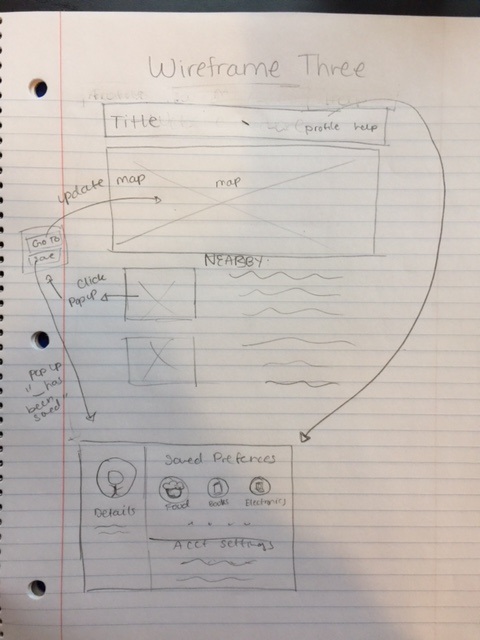 Wireframe Three
Title
profile help
update map
map
Go To
Save
NEARBY:
Click
Popup
Pop up
"__has
been
saved"
Saved Prefences
Food
Books
Electronics
Details
Acct Settings